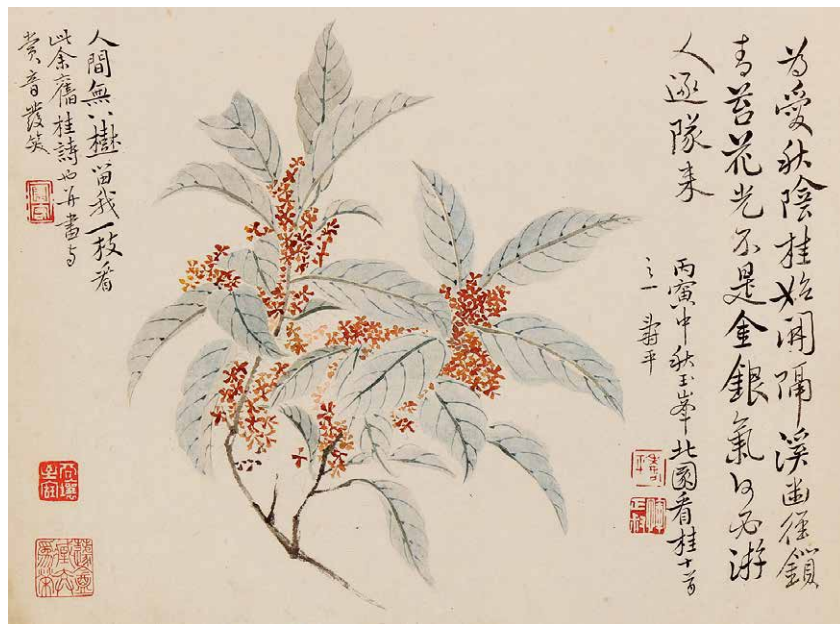 為愛秋陰桂始開隔溪幽徑鎖
青苔花光不是金銀氣何必游
人逐隊来
丙寅中秋玉峯北園看桂十首
之一 壽平
壽平
惲正叔
人間無八樹留我一枝看
此余舊桂詩也并書与
賞音發笑